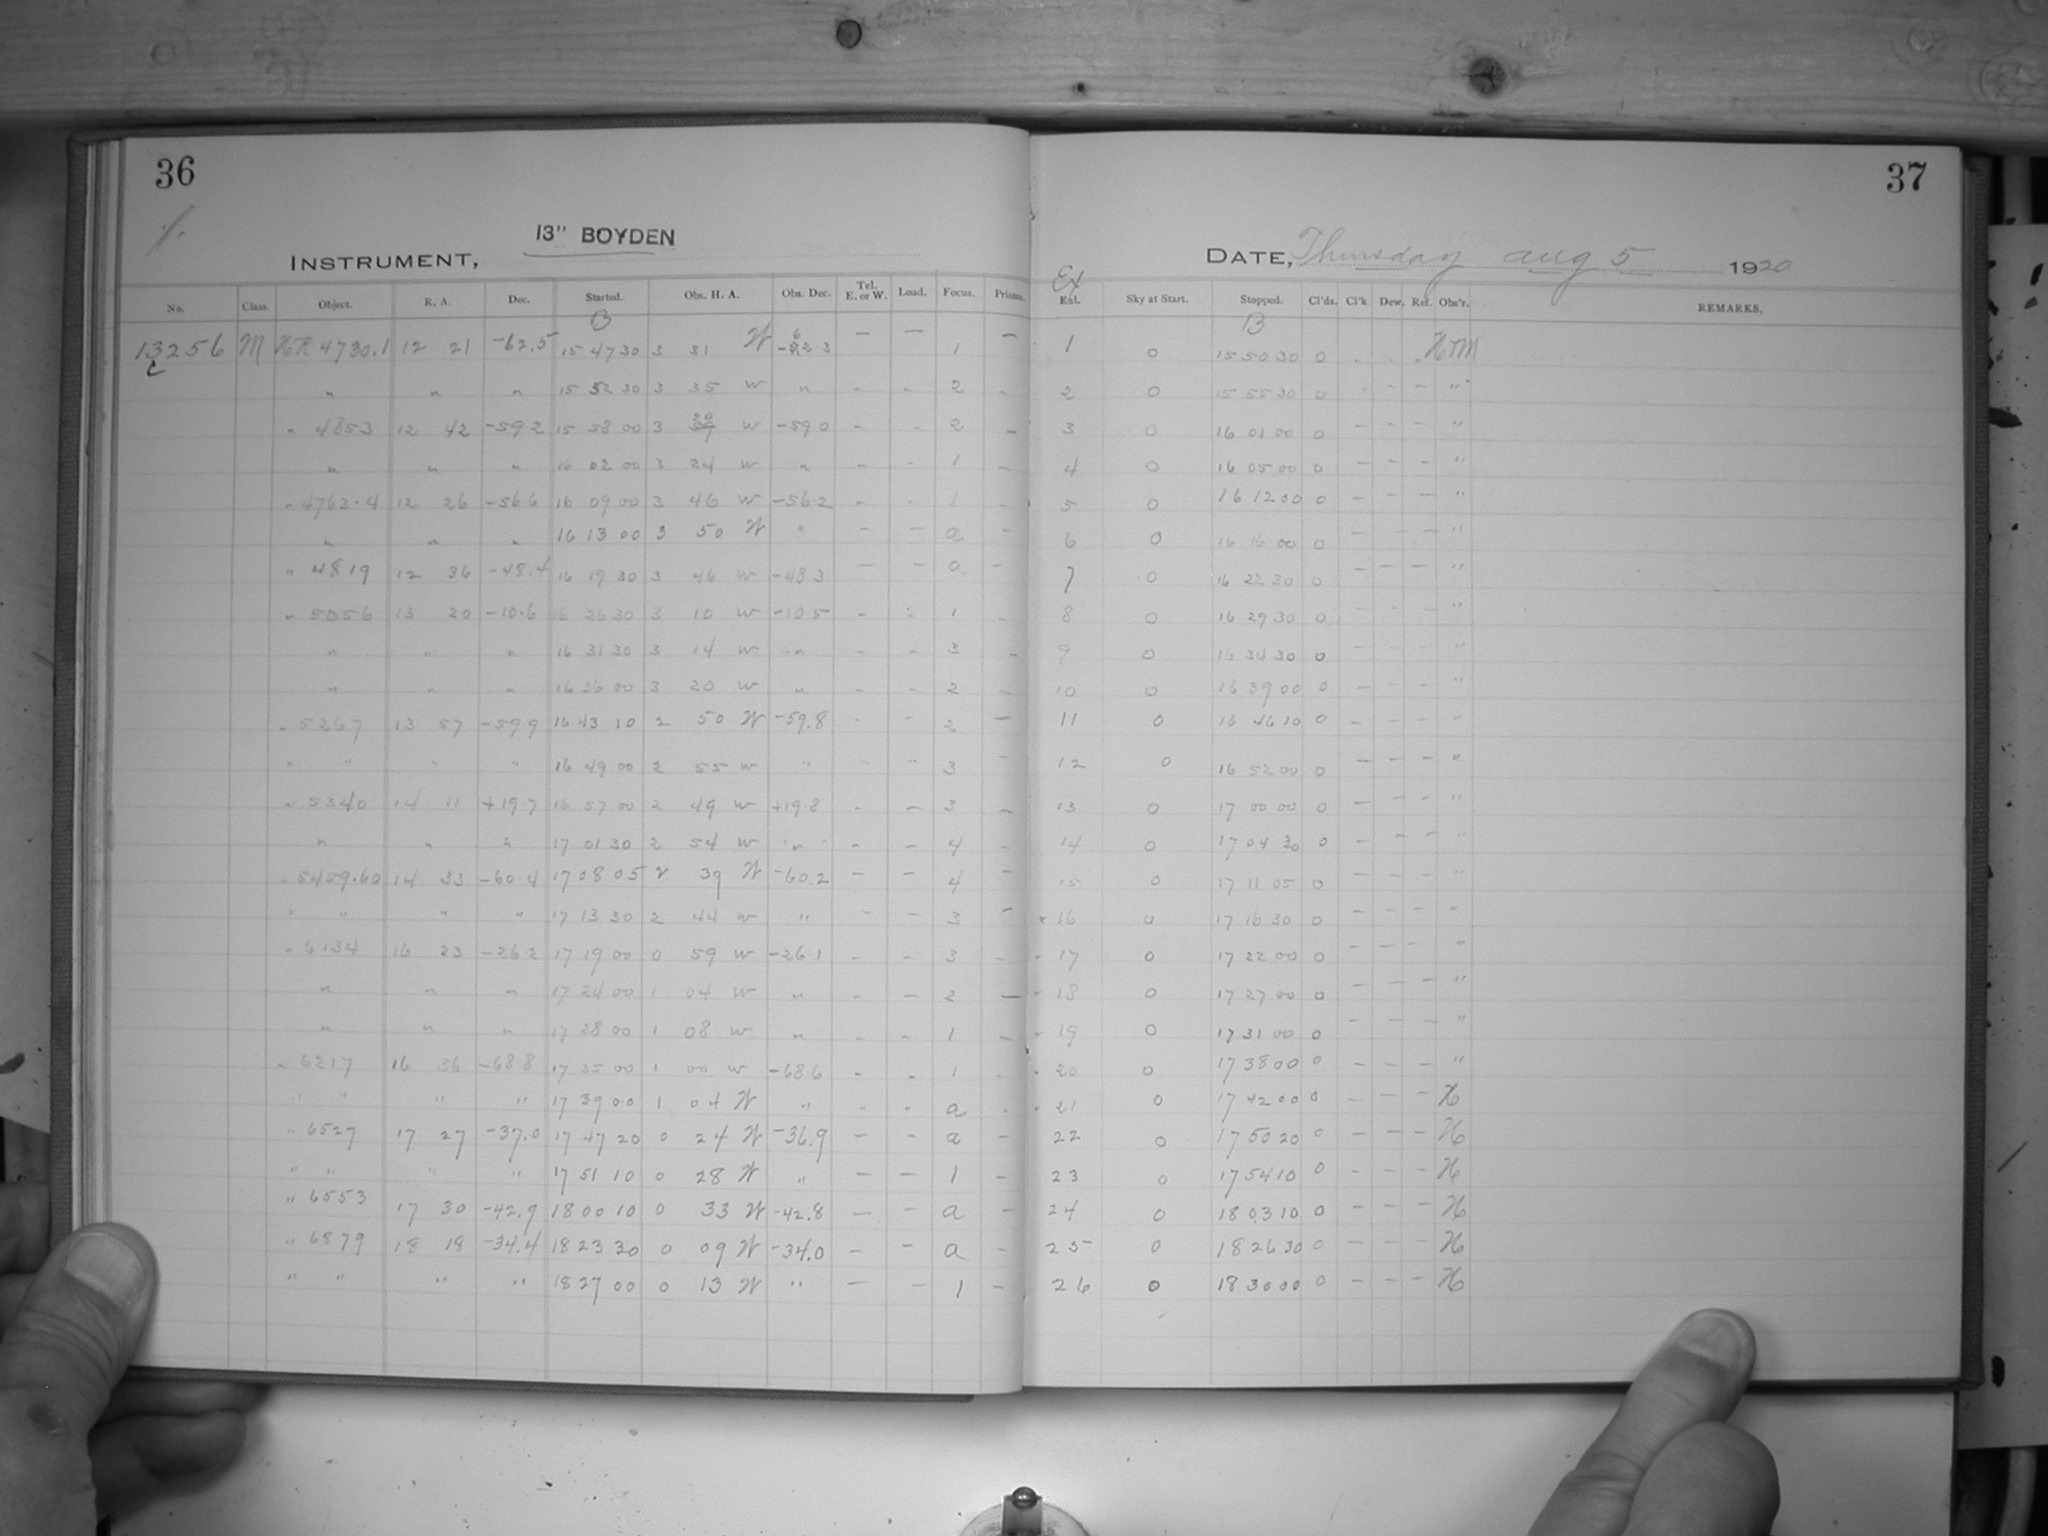 36
37
13" BOYDEN
INSTRUMENT,
DATE, Thursday Aug 5 1920
Ex
No. Class. Object. R. A. Dec. Started. Obs. H. A. Obs. Dec. Tel. E. or W. Load. Focus. Prisms. Enl. Sky at Start. Stopped. Cl'ds. Cl'k. Dew. Ref. Obs'r. REMARKS.
B B
13256 M HR 4730.1 12 21 -62.5 15 47 30 3 31 W 1 — 1 0 15 50 30 0
c
" " " 15 52 30 3 35 W " - - 2 - 2 0 15 55 30 0 - - - "
" 4853 12 42 -59.2 15 58 00 3 W -59.0 - - 2 - 3 0 16 01 00 0 - - - "
" " " 16 02 00 3 24 W " - - 1 - 4 0 16 05 00 0 - - - "
" 4763.4 12 26 -56.6 16 09 00 3 46 W -56.2 - - 1 - 5 0 16 12 00 0 - - - "
" " " 16 13 00 3 50 W " - - a - 6 0 16 16 00 0 - - - "
" 4819 12 36 -48.4 16 19 30 3 46 W -48.3 - - a - 7 0 16 22 30 0 - - - "
" 5056 13 20 -10.6 16 26 30 3 10 W -10.5 - - 1 - 8 0 16 29 30 0 - - - "
" " " 16 31 30 3 14 W " - - 3 - 9 0 16 34 30 0 - - - "
" " " 16 36 00 3 20 W " - - 2 - 10 0 16 39 00 0 - - - "
" 5267 13 57 -59.9 16 43 10 2 50 W -59.8 - - 2 - 11 0 16 46 10 0 - - - "
" " " " 16 49 00 2 55 W " - " 3 - 12 0 16 52 00 0 - - - "
" 5340 14 11 +19.7 16 57 00 2 49 W +19.8 - - 3 - 13 0 17 00 00 0 - - - "
" " " 17 01 30 2 54 W " - - 4 - 14 0 17 04 30 0 - - - "
" 5459.60 14 33 -60.4 17 08 05 2 39 W -60.2 - - 4 - 15 0 17 11 05 0 - - - "
" " " " 17 13 30 2 44 W " - - 3 - 16 0 17 16 30 0 - - - "
" 6134 16 23 -26.2 17 19 00 0 59 W -26.1 - - 3 - 17 0 17 22 00 0 - - - "
" " " 17 24 00 1 04 W " - - 2 - 18 0 17 27 00 0 - - - "
" " " 17 28 00 1 08 W " - - 1 - 19 0 17 31 00 0 - - - "
" 6217 16 36 -68.8 17 35 00 1 00 W -68.6 - - 1 - 20 0 17 38 00 0 - - - "
" " " " 17 39 00 1 04 W " - - a - 21 0 17 42 00 0 - - - H
" 6527 17 27 -37.0 17 47 20 0 24 W -36.9 - - a - 22 0 17 50 20 0 - - - H
" " " " 17 51 10 0 28 W " - - 1 - 23 0 17 54 10 0 - - - H
" 6553 17 30 -42.9 18 00 10 0 33 W -42.8 - - a - 24 0 18 03 10 0 - - - H
" 6879 18 18 -34.4 18 23 30 0 09 W -34.0 - - a - 25 0 18 26 30 0 - - - H
" " " " 18 27 00 0 13 W " - - 1 - 26 0 18 30 00 0 - - - H